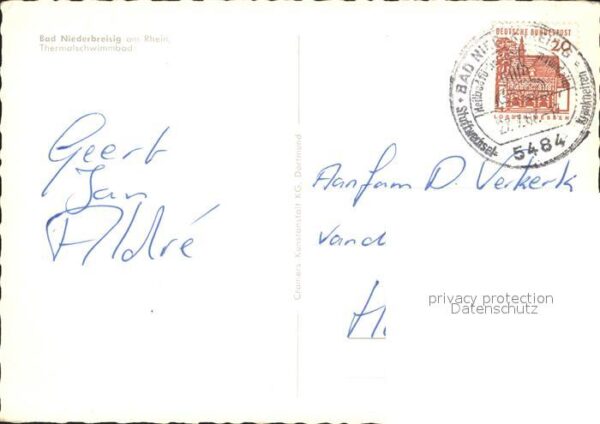 Bad Niederbreisig am Rhein,
Thermalschwimmbad
Geert
Jan
André
Cramers Kunstanstalt KG, Dortmund
DEUTSCHE BUNDESPOST
20
BAD NIEDERBREISIG
Stoffwechsel-
Krankheiten
5484
Aan fam D. Verkerk
vand
H
privacy protection
Datenschutz